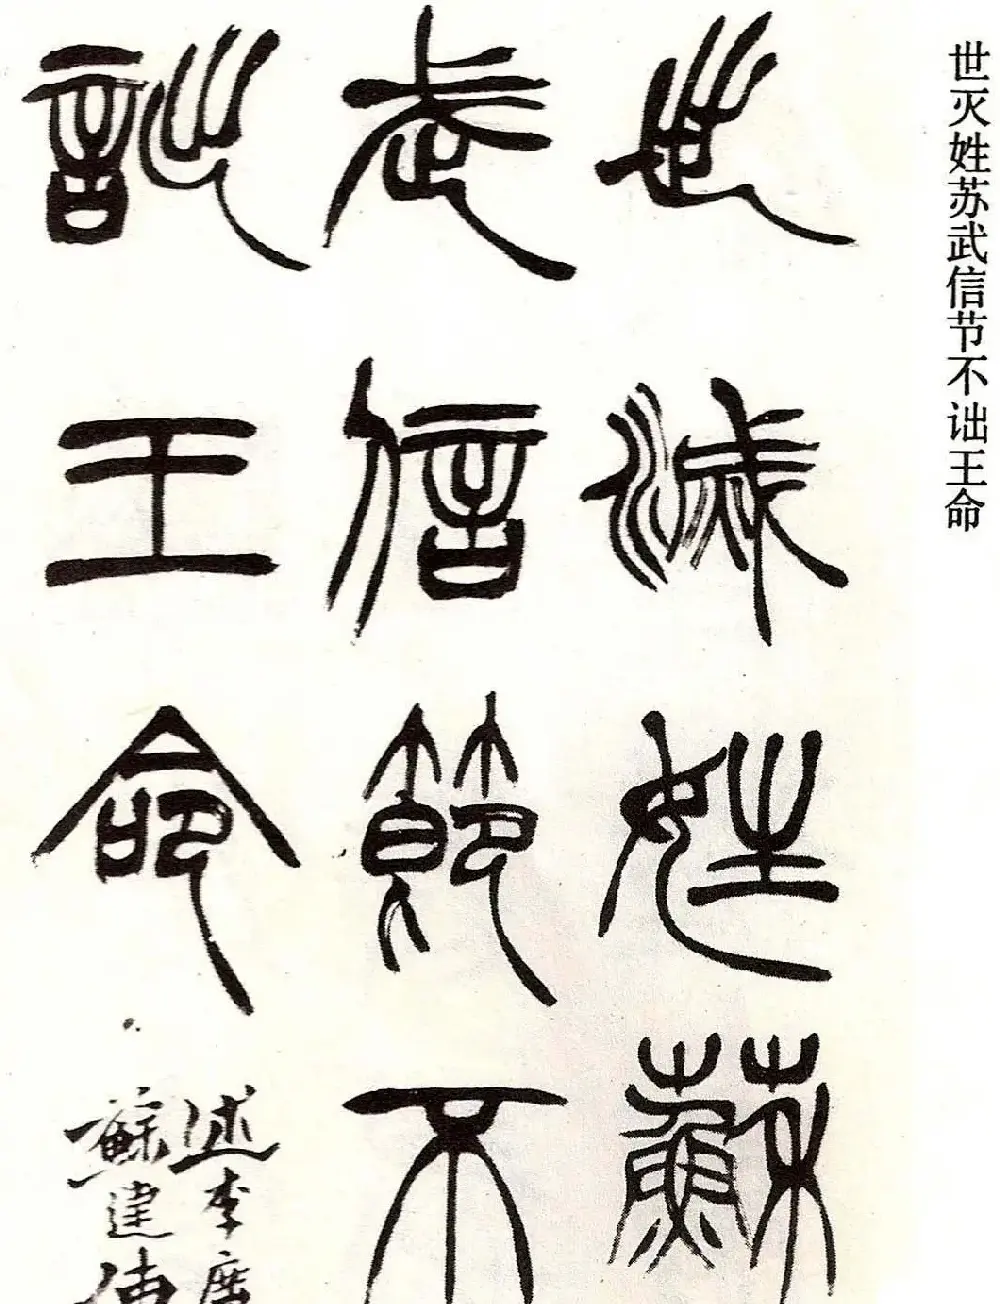 世灭姓苏武信节不诎王命
世滅姓蘇
武信節不
詘王命
述李廣
蘇建傳